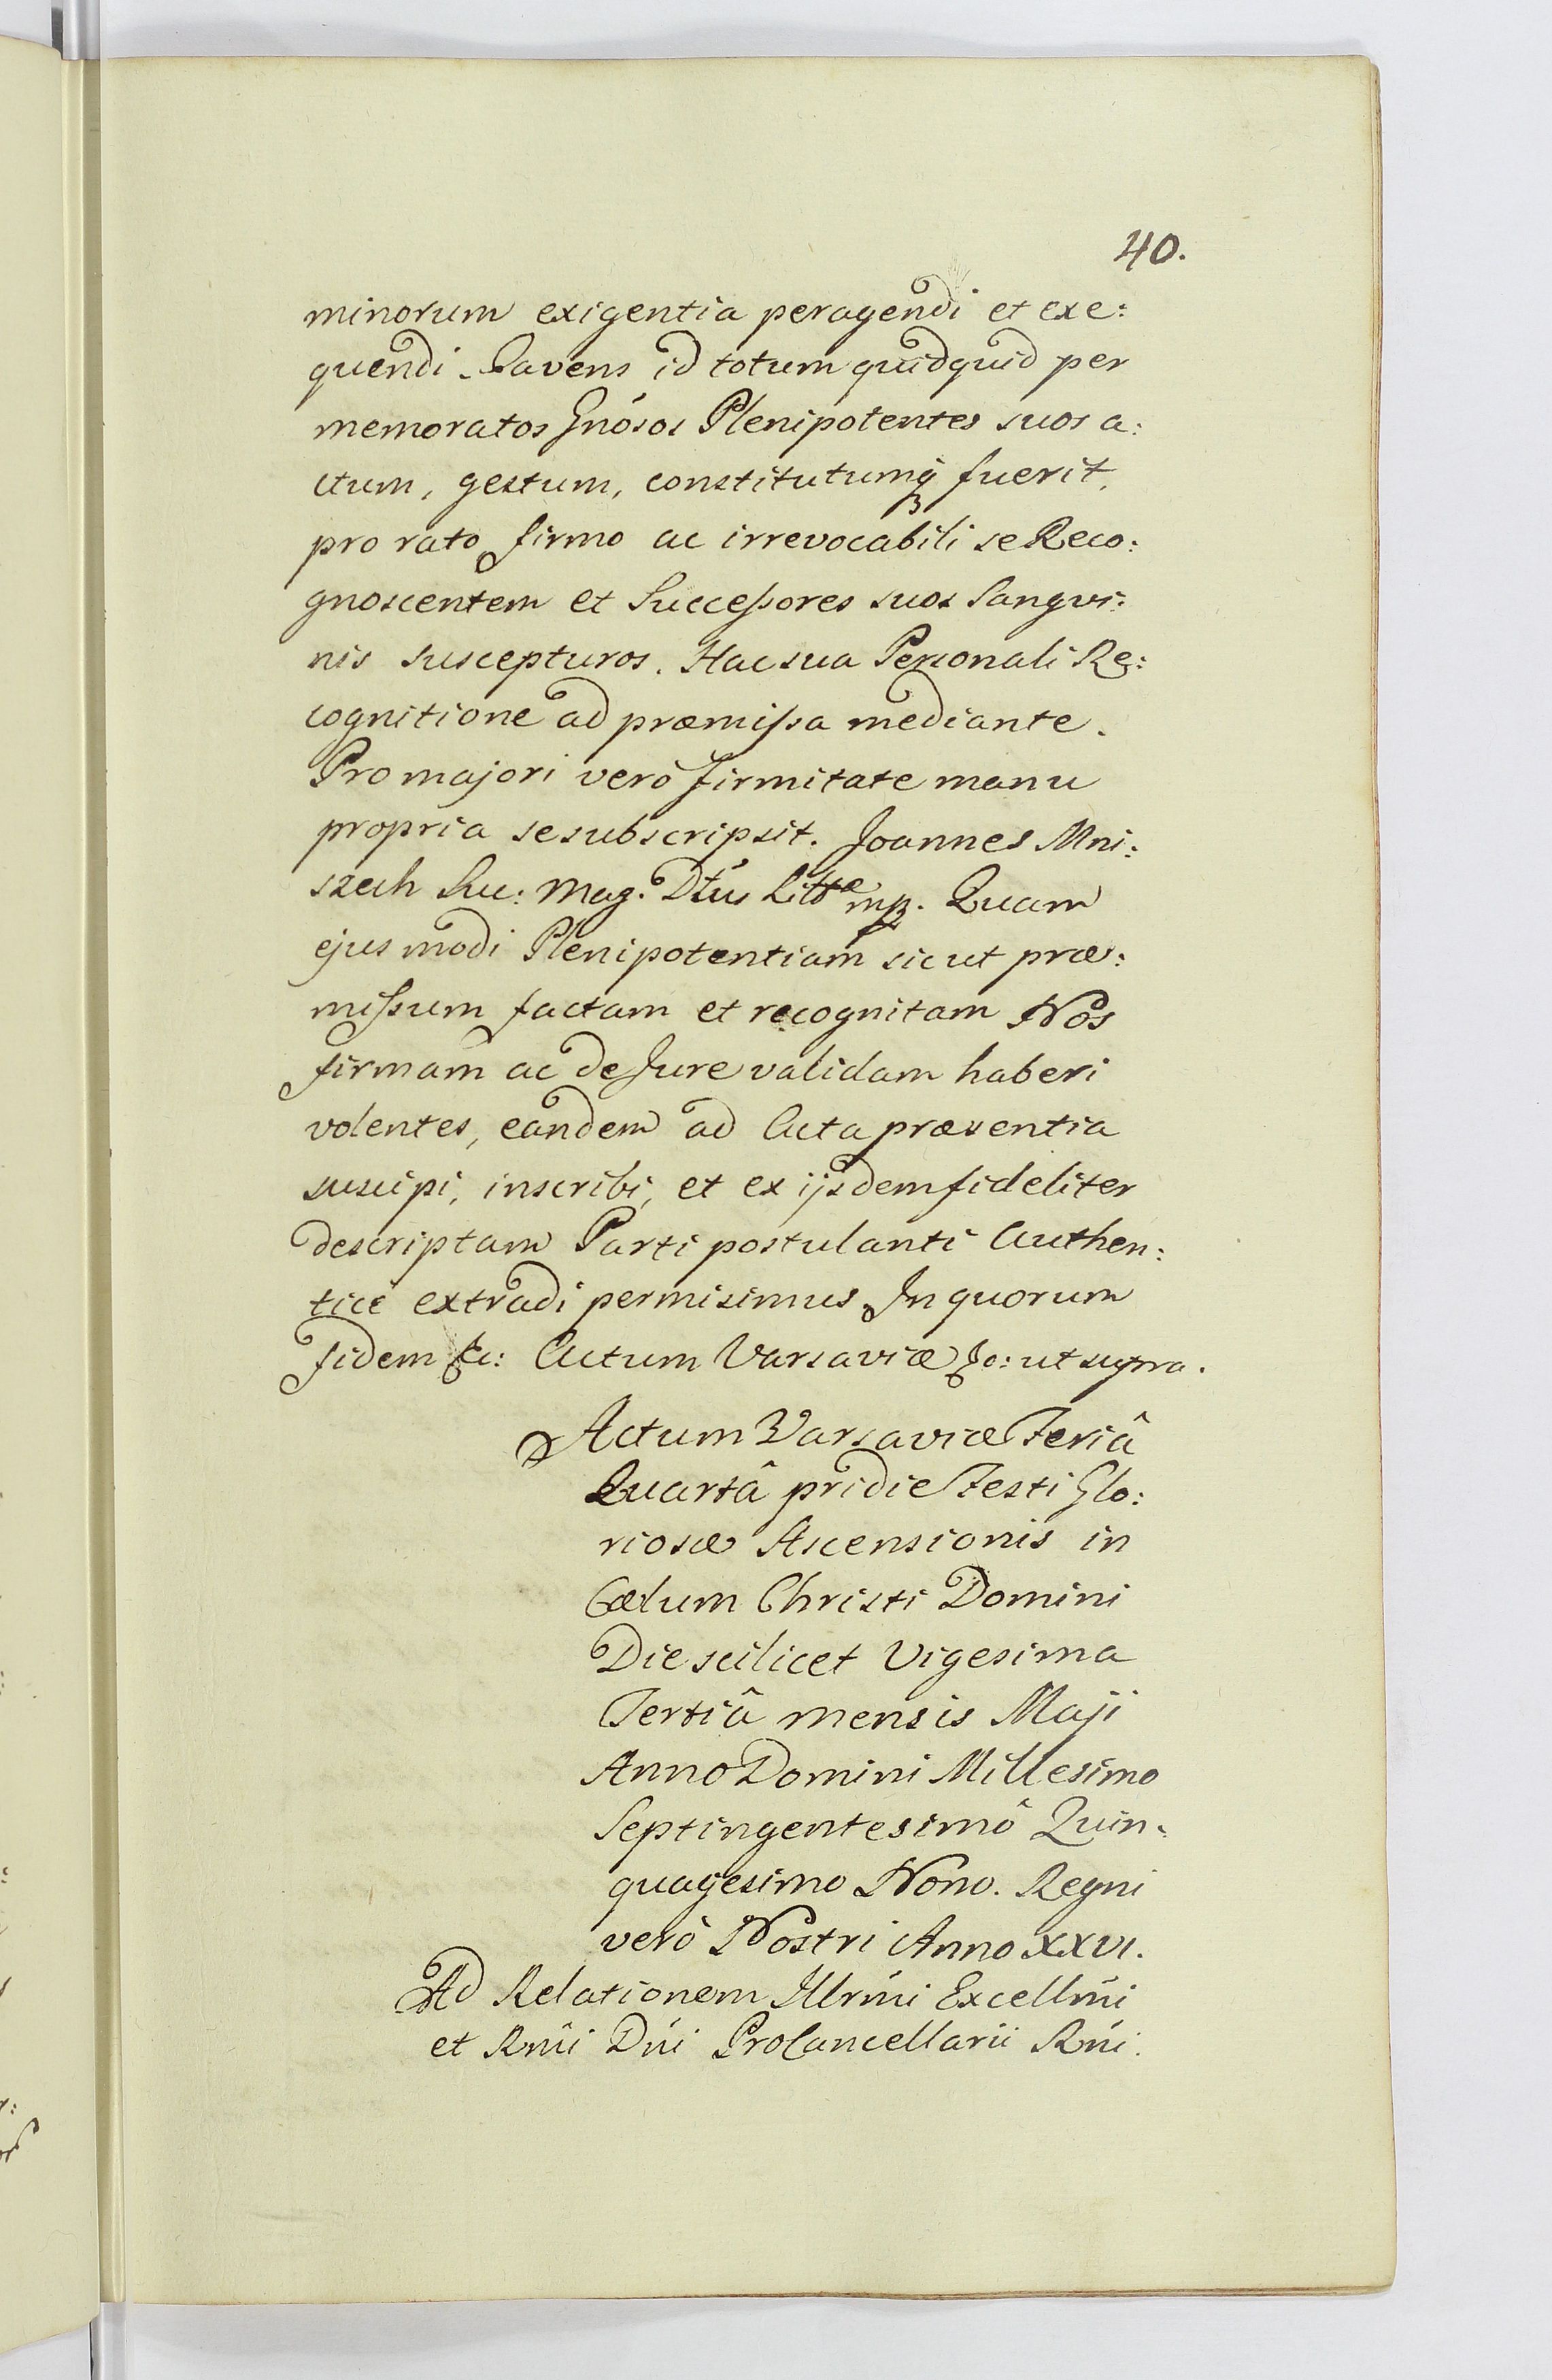 40.
minorum exigentia peragendi et exe:
quendi. Cavens id totum quidquid per
memoratos Gnósos Plenipotentes suos a:
ctum, gestum, constitutumq́ fuerit,
pro rato firmo ac irrevocabili se Reco:
gnoscentem et Succeſsores suos Sangvi:
nis suscepturos. Hac sua Personali Re:
cognitione ad præmiſsa mediante.
Pro majori verò firmitate manu
propria se subscripsit. Joannes Mni:
szech Suc: Mag: Dtús Littæ mp. Quam
ejusmodi Plenipotentiam sicut præ:
miſsum factam et recognitam Nos
firmam ac de Jure validam haberi
volentes, eandem ad Acta præsentia
suscipi, inscribi, et ex ijsdem fideliter
descriptam Parti postulanti Authen:
tice extradi permisimus. In quorum
fidem &c: Actum Varsaviæ &c: ut supra.
Actum Varsaviæ Feriâ
Quartâ pridie Festi Glo:
riosæ Ascensionis in
Cælum Christi Domini
Die scilicet Vigesima
Tertiâ mensis Maji
Anno Domini Millesimo
Septingentesimô Quin:
quagesimo Nono. Regni
verò Nostri Anno XXVI.
Ad Relationem Illrmi Excellmi
et Rmi Dni ProCancellarii Rni.